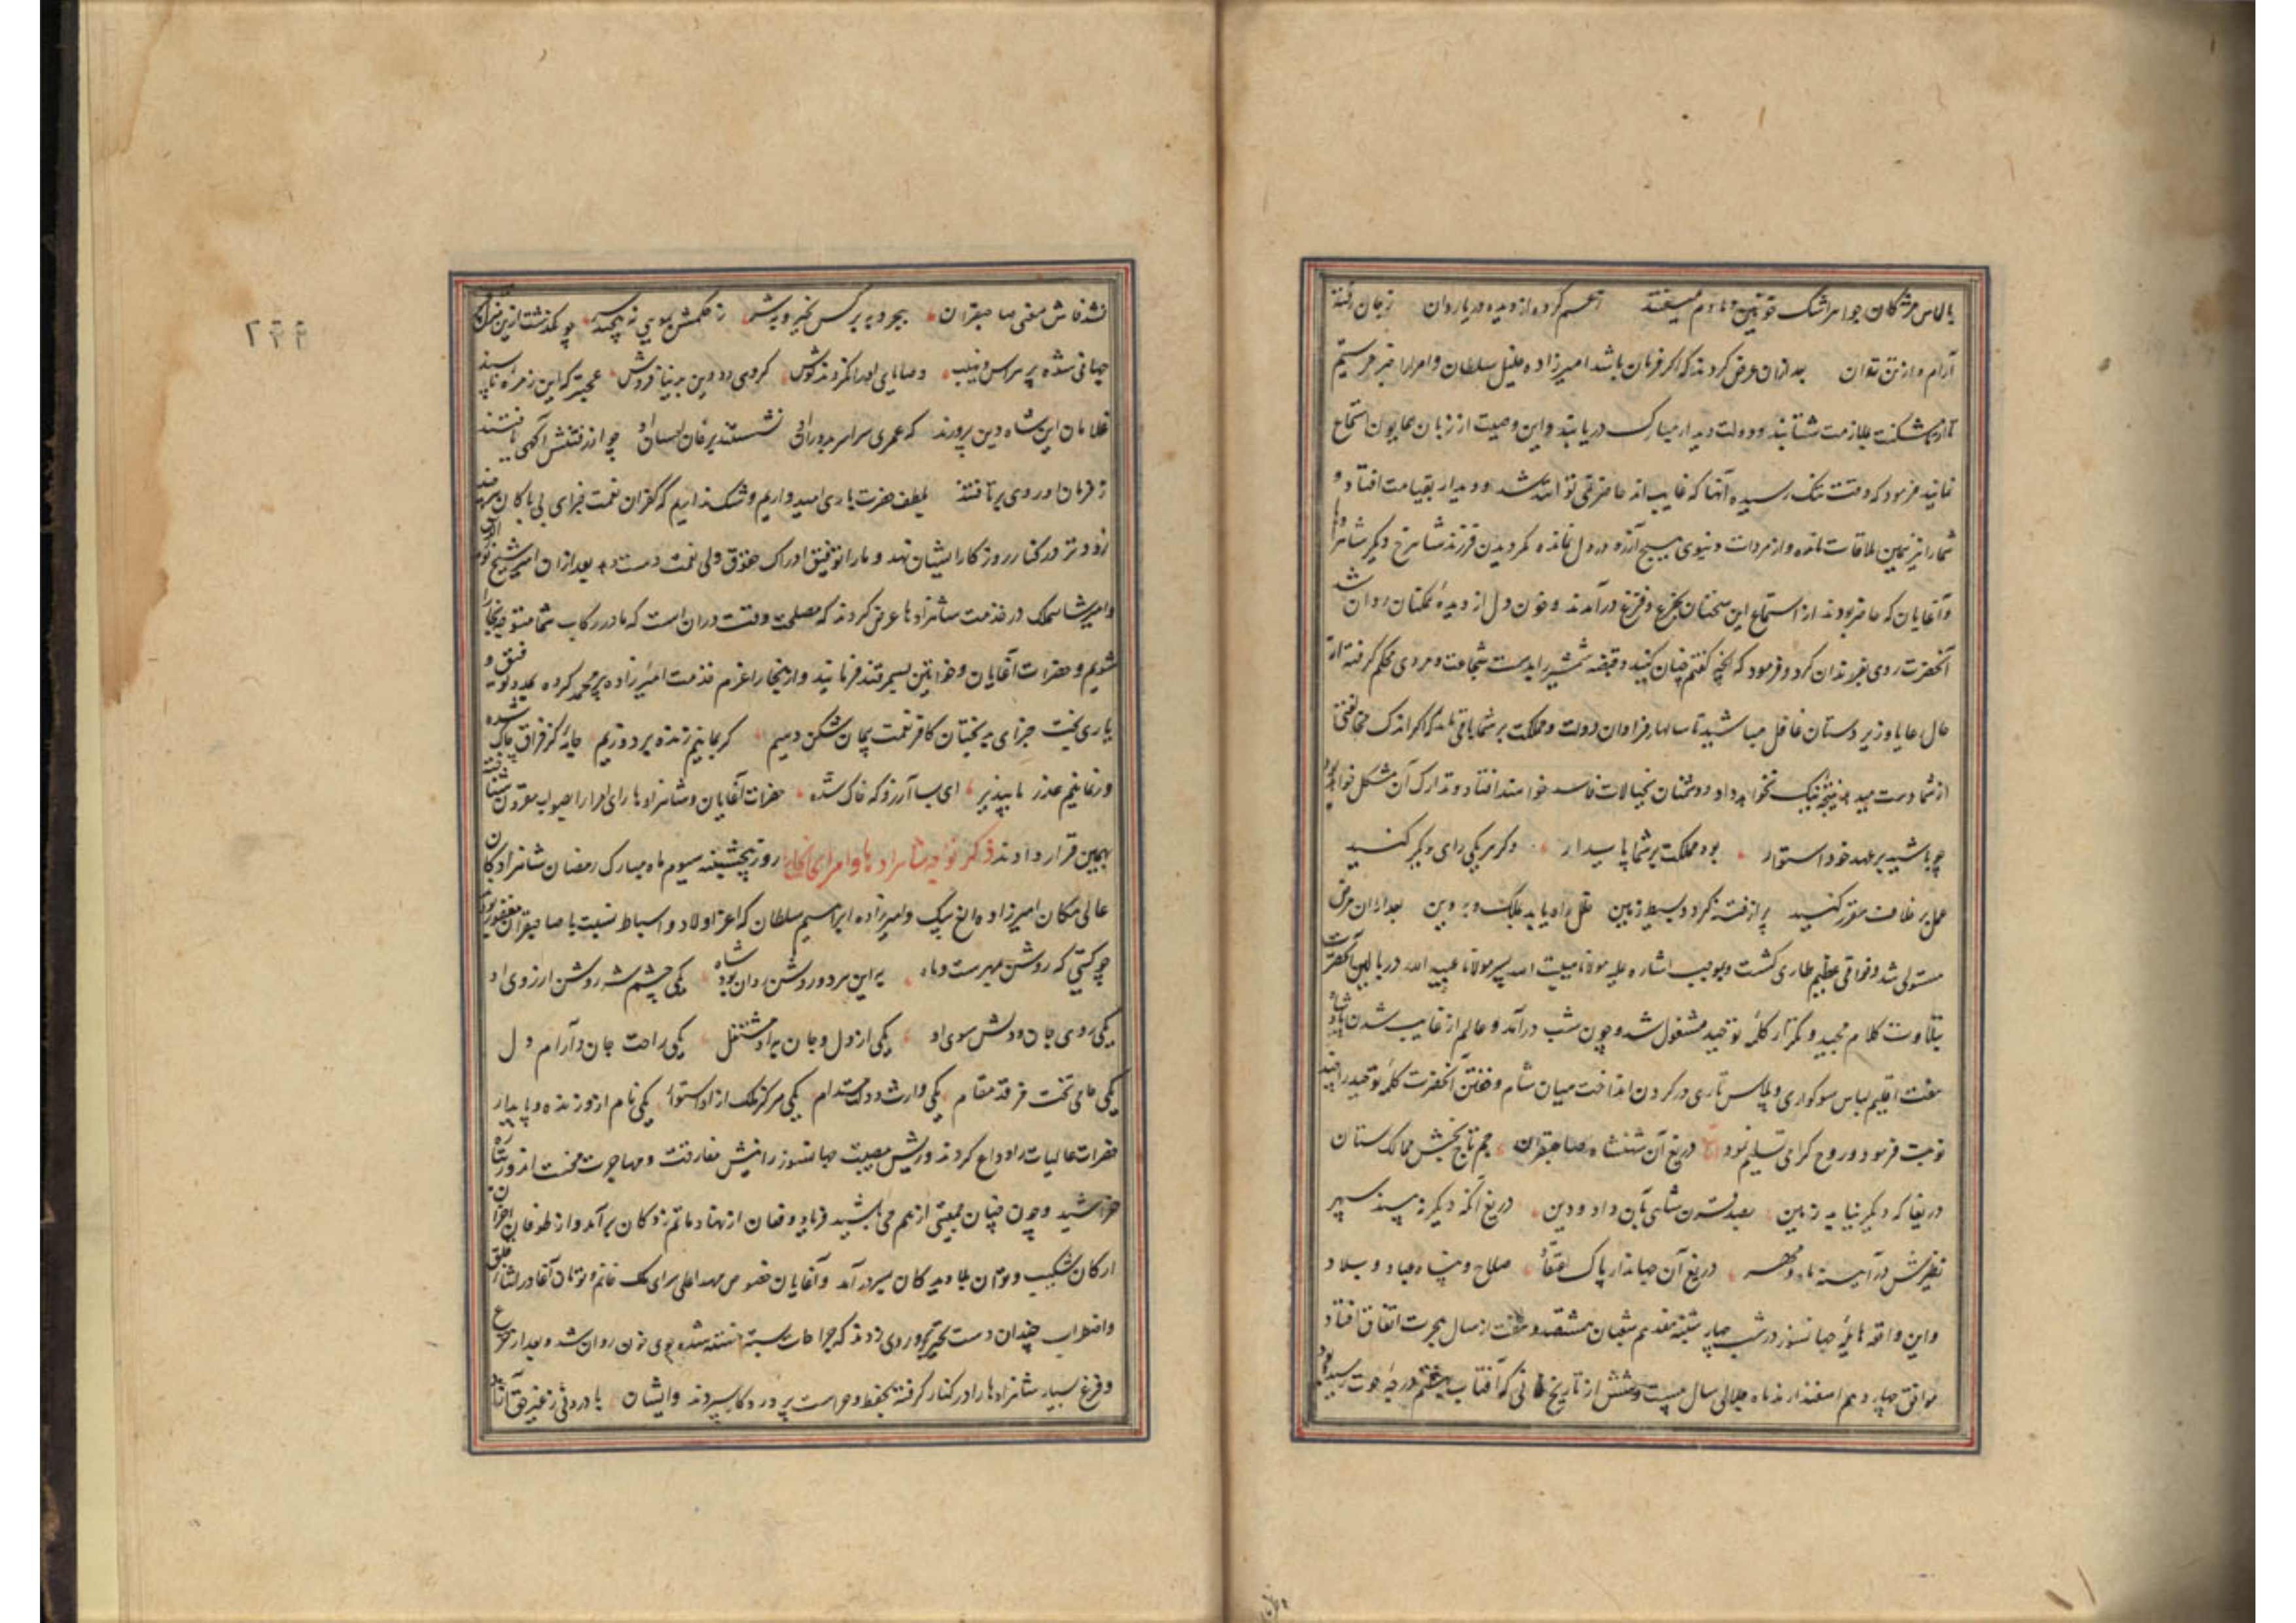 بالماس مژکان جواهر اشک خونین دمادم میسفتند ز جان رفته
آرام و از تن توان بعد ازان عرض کردند که اکر فرمان باشد امیرزاده خلیل سلطان و امرا را خبر فرستیم
تا از تاشکنت بملازمت شتابند و دولت دیدار مبارک دریابند و این وصیت از زبان همایون استماع
نمایند فرمود که وقت تنک رسیده آنها که غایب اند حاضر نمی توانند شد و دیدار بقیامت افتاد و
شما را نیز همین ملاقات مانده و از مرادات دنیوی هیچ آرزو در دل نمانده مکر دیدن فرزند شاهرخ دیکر شاهزادها
و آغایان که حاضر بودند از استماع این سخنان بجزع و فزع درآمدند و خون دل از دیده همکنان روان شد
آنحضرت روی بفرزندان کرد و فرمود که آنچه کفتم چنان کنید و قبضه شمشیر را بدست شجاعت و مردی محکم کرفته از
حال رعایا و زیر دستان غافل مباشید تا سالهاء فراوان دولت و مملکت بر شما باقی ماند که اکر اندک مخالفتی
از شما دست میدهد نتیجه نیک نخواهد داد و دشمنان بخیالات فاسد خواهند افتاد و تدارک آن مشکل خواهد بود
چو باشید بر عهد خود استوار بود مملکت بر شما پایدار وکر هر یکی رای دیکر کنید
عمل بر خلافت مقرر کنید پر از فتنه کردد بسیط زمین خلل راه یابد بملک و بدین بعد ازان مرض
مستولی شد و فواقی عظیم طاری کشت و بموجب اشاره علیه مولانا هیبت الله پسر مولانا عبید الله در بالین آنحضرت
بتلاوت کلام مجید و تکرار کلمه توحید مشغول شد و چون شب درآمد و عالم از غایب شدن پادشاه
هفت اقلیم لباس سوکواری و پلاس تاری در کردن انداخت میان شام و خفتن آنحضرت کلمه توحید را چند
نوبت فرمود و روح کرامی تسلیم نمود دریغ آن شهنشاه صاحبقران جم تاج بخش ممالک ستان
دریغا که دیکر نیاید زمین بصد قرن شاهی بآن داد و دین دریغ آنکه دیکر نه بیند سپهر
نظیرش در آیینه ماه و مهر دریغ آن جهاندار پاک اعتقاد صلاح و پناه عباد و بلاد
و این واقعه هایله جهانسوز در شب چهار شنبه هفدهم شعبان هشتصد و هفت از سال هجرت اتفاق افتاد
موافق چهاردهم اسفندارمذ ماه جلالی سال بیست و شش از تاریخ خانی که آفتاب بهشتم درجه حوت رسیده بود
نشد فاش مغفی صاحبقران بجود بر کس نخیر و بشر ز حکمش بموی نه پیچید سر چو بکذشت ازین منزل
جهانی شده پر هراس و نهیب وصایای او را نکردند کوش کروهی دو دین بدنیا فروش عجبتر که این زمره ناپسند
غلامان این شاه دین پرورند که عمری سراسر بدوران او نشستند بر خان احسان او چو از رفتنش آکهی یافتند
ز فرمان او روی برتافتند بلطف حضرت باری امیدواریم و شک نداریم که کفران نعمت جزای بی باکان
زودتر در کنار روزکار ایشان نهد و ما را توفیق ادراک حقوق ولی نعمت دست دهد بعد ازان امیر شیخ نور الدین
و امیر شاهملک در خدمت شاهزادها عرض کردند که مصلحت وقت دران است که ما در رکاب شما متوجه بخارا
شویم و حضرات آغایان و خواتین بسمرقند فرمایند و از بخارا عزم خدمت امیرزاده پیر محمد کرده بمدد توفیق و
یاری بخت جزای بدبختان کافر نعمت پیمان شکن دهیم کر بمانیم زنده بر دوزیم جامه کز فراق چاک شده
ور نمانیم عذر ما بپذیر ای بسا آرزو که خاک شده حضرات آغایان و شاهزادها رای امرا را بصواب مقرون شناخته
بهمین قرار دادند ذکر توجه شاهزادها و امرا ببخارا روز پنجشنبه سیوم ماه مبارک رمضان شاهزادکان
عالی مکان امیرزاده الغ بیک و امیرزاده ابراهیم سلطان که اعز اولاد و اسباط نسبت با صاحبقران مغفور بودند
چو کیتی که روشن بمهرست و ماه به این هر دو روشن روان بود شاه یکی چشم شه روشن از روی او
یکی روی جان و دلش سوی او یکی از دل و جان به او مشتغل یکی راحت جان و آرام دل
یکی حامی تخت فرقد مقام یکی وارث دولت مستدام یکی مرکز ملک از او استوار یکی نام از و زنده و پایدار
حضرات عالیات را وداع کردند و ریش مصیبت جهانسوز را نیش مفارقت و مهاجرت محنت اندوز تازه
خراشید و چون چنان جمعیتی از هم می پاشید فریاد و فغان از نهاد ماتم زدکان برآمد و از طوفان احزان
ارکان شکیب و توان بلادیدکان بسر درآمد و آغایان خصوص مهد اعلی سرای ملک خانم و تومان آغا در اثناء قلق
و اضطراب چندان دست تحیر بر روی زدند که جراحات بسته خسته شده جوی خون روان شد و بعد از جزع
و فزع بسیار شاهزادها را در کنار کرفته بحفظ و حراست پروردکار سپردند و ایشان با درونی ز غیر حق آزاد